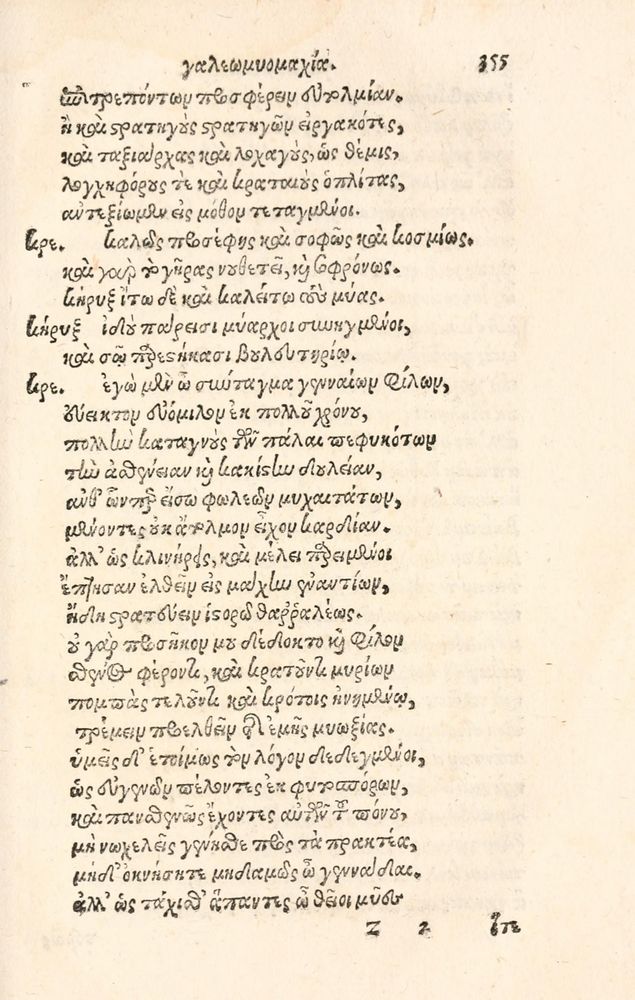 γαλεωμυομαχία. 355
ἐπιτρεπόντων προσφέρειν εὐτολμίαν.
ἢ καὶ στρατηγοὺς στρατηγῶν εἰργακότες,
καὶ ταξιάρχας καὶ λοχαγοὺς, ὡς θέμις,
λογχηφόρους τὲ καὶ κραταιοὺς ὁπλίτας,
ἀντεξίωμεν εἰς μόθον τεταγμένοι.
κρε. καλῶς προσέφης καὶ σοφῶς καὶ κοσμίως.
καὶ γὰρ τὸ γῆρας νουθετεῖ, καὶ σωφρόνως.
κήρυξ ἴτω δὲ καὶ καλείτω τοὺς μύας.
κήρυξ ἰδοὺ πάρεισι μύαρχοι συνηγμένοι,
καὶ σῷ παρεστήκασι βουλευτηρίῳ.
κρε. ἐγὼ μὲν ὦ σύνταγμα γενναίων φίλων,
εὔεικτον εὐόμιλον ἐκ πολλοῦ χρόνου,
πολλὴν καταγνοὺς τῶν πάλαι πεφυκότων
τὴν ἀσθένειαν καὶ κακίστην δουλείαν,
ἀνθ' ὧν περ εἴσω φωλεῶν μυχαιτάτων,
μένοντες οὐκ εὔτολμον εἶχον καρδίαν.
ἀλλ' ὡς κλινήρεις, καὶ μέλει παρειμένοι
ἔπτησαν ἐλθεῖν εἰς μάχην ἐναντίων,
ἤδη στρατεύειν ἱστορῶ θαῤῥαλέως.
οὐ γὰρ προσῆκον μου δέδοκτο καὶ φίλον
σθένος φέροντι, καὶ κρατοῦντι μυρίων
πομπὰς τελοῦντι καὶ κρότοις ἠνημένῳ,
τρέμειν προελθεῖν τῆς ἐμῆς μυωξίας.
ὑμεῖς δ' ἑτοίμως τὸν λόγον δεδεγμένοι,
ὡς εὐγενῶν πέλοντες ἐκ φυτοσπόρων,
καὶ πανσθενῶς ἔχοντες αὐτῶν τοῦ πόνου,
μὴ νωχελεῖς γένησθε πρὸς τὰ πρακτέα,
μηδ' ὀκνήσητε μηδαμῶς ὦ γεννάδαι.
ἀλλ' ὡς τάχισθ' ἅπαντες ὦ θεῖοι μῦες
Z 2 ἴτε